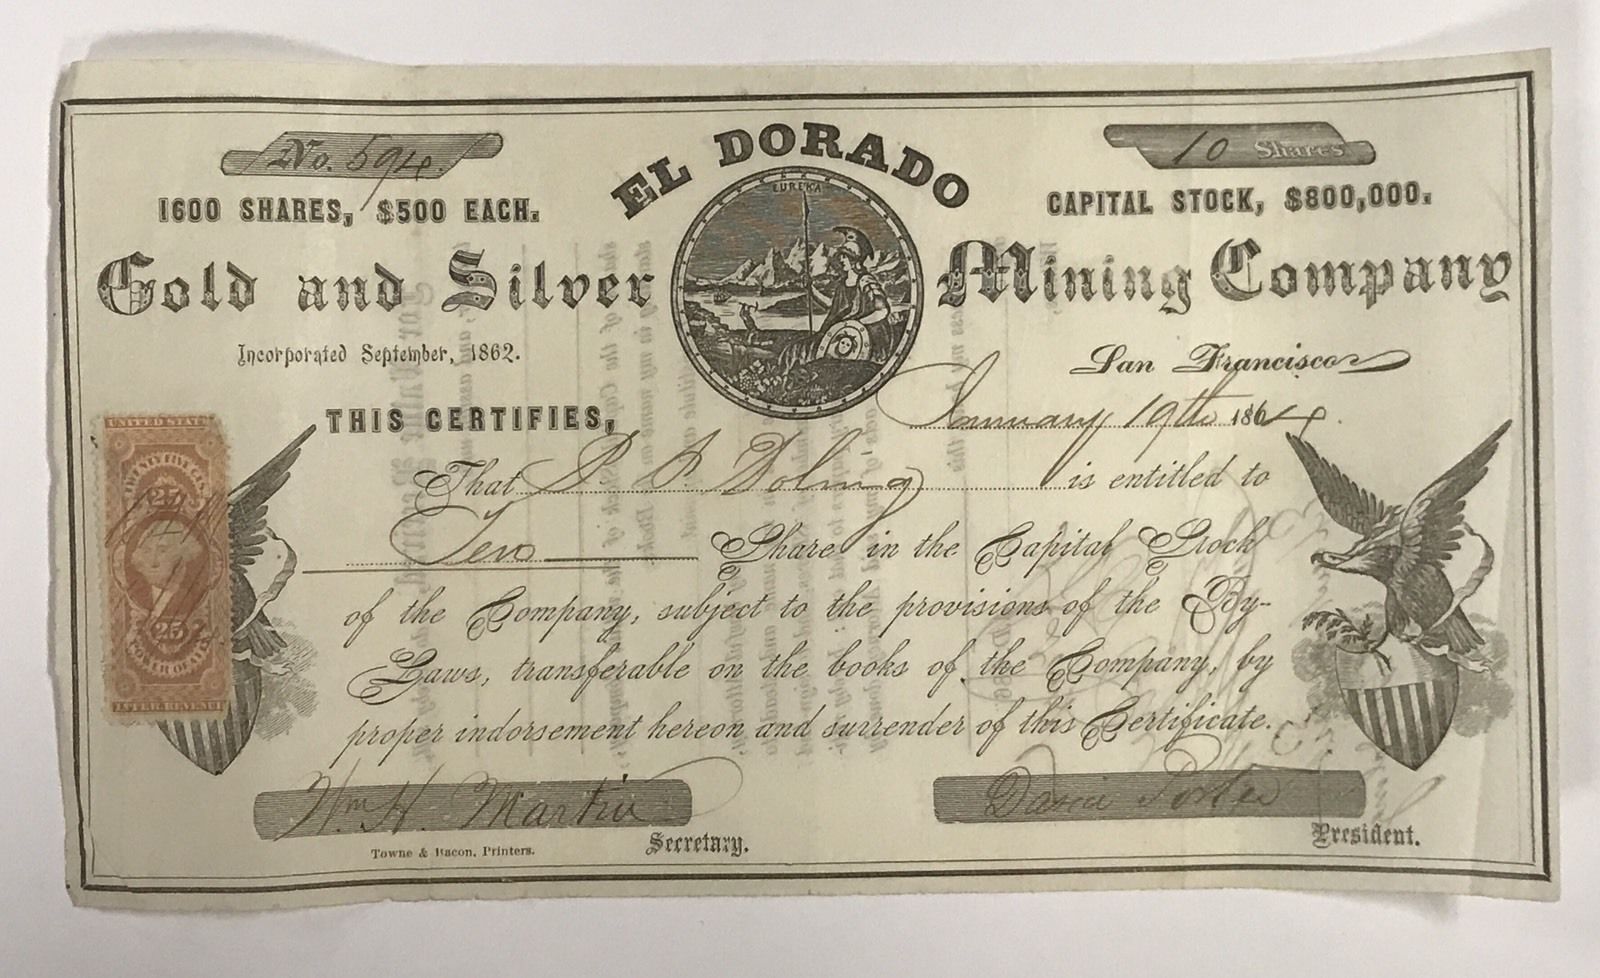 No. 594.
10 Shares
1600 SHARES, $500 EACH.
EL DORADO
CAPITAL STOCK, $800,000.
EUREKA
Gold and Silver Mining Company
Incorporated September, 1862.
San Francisco
January 19th 1864.
THIS CERTIFIES,
That is entitled to
Ten Share in the Capital Stock
of the Company, subject to the provisions of the By-
Laws, transferable on the books of the Company, by
proper indorsement hereon and surrender of this Certificate.
Wm H. Martin
Secretary.
Porter
President.
Towne & Bacon, Printers.
UNITED STATES
TWENTY FIVE
25
25
INTER. REVENUE